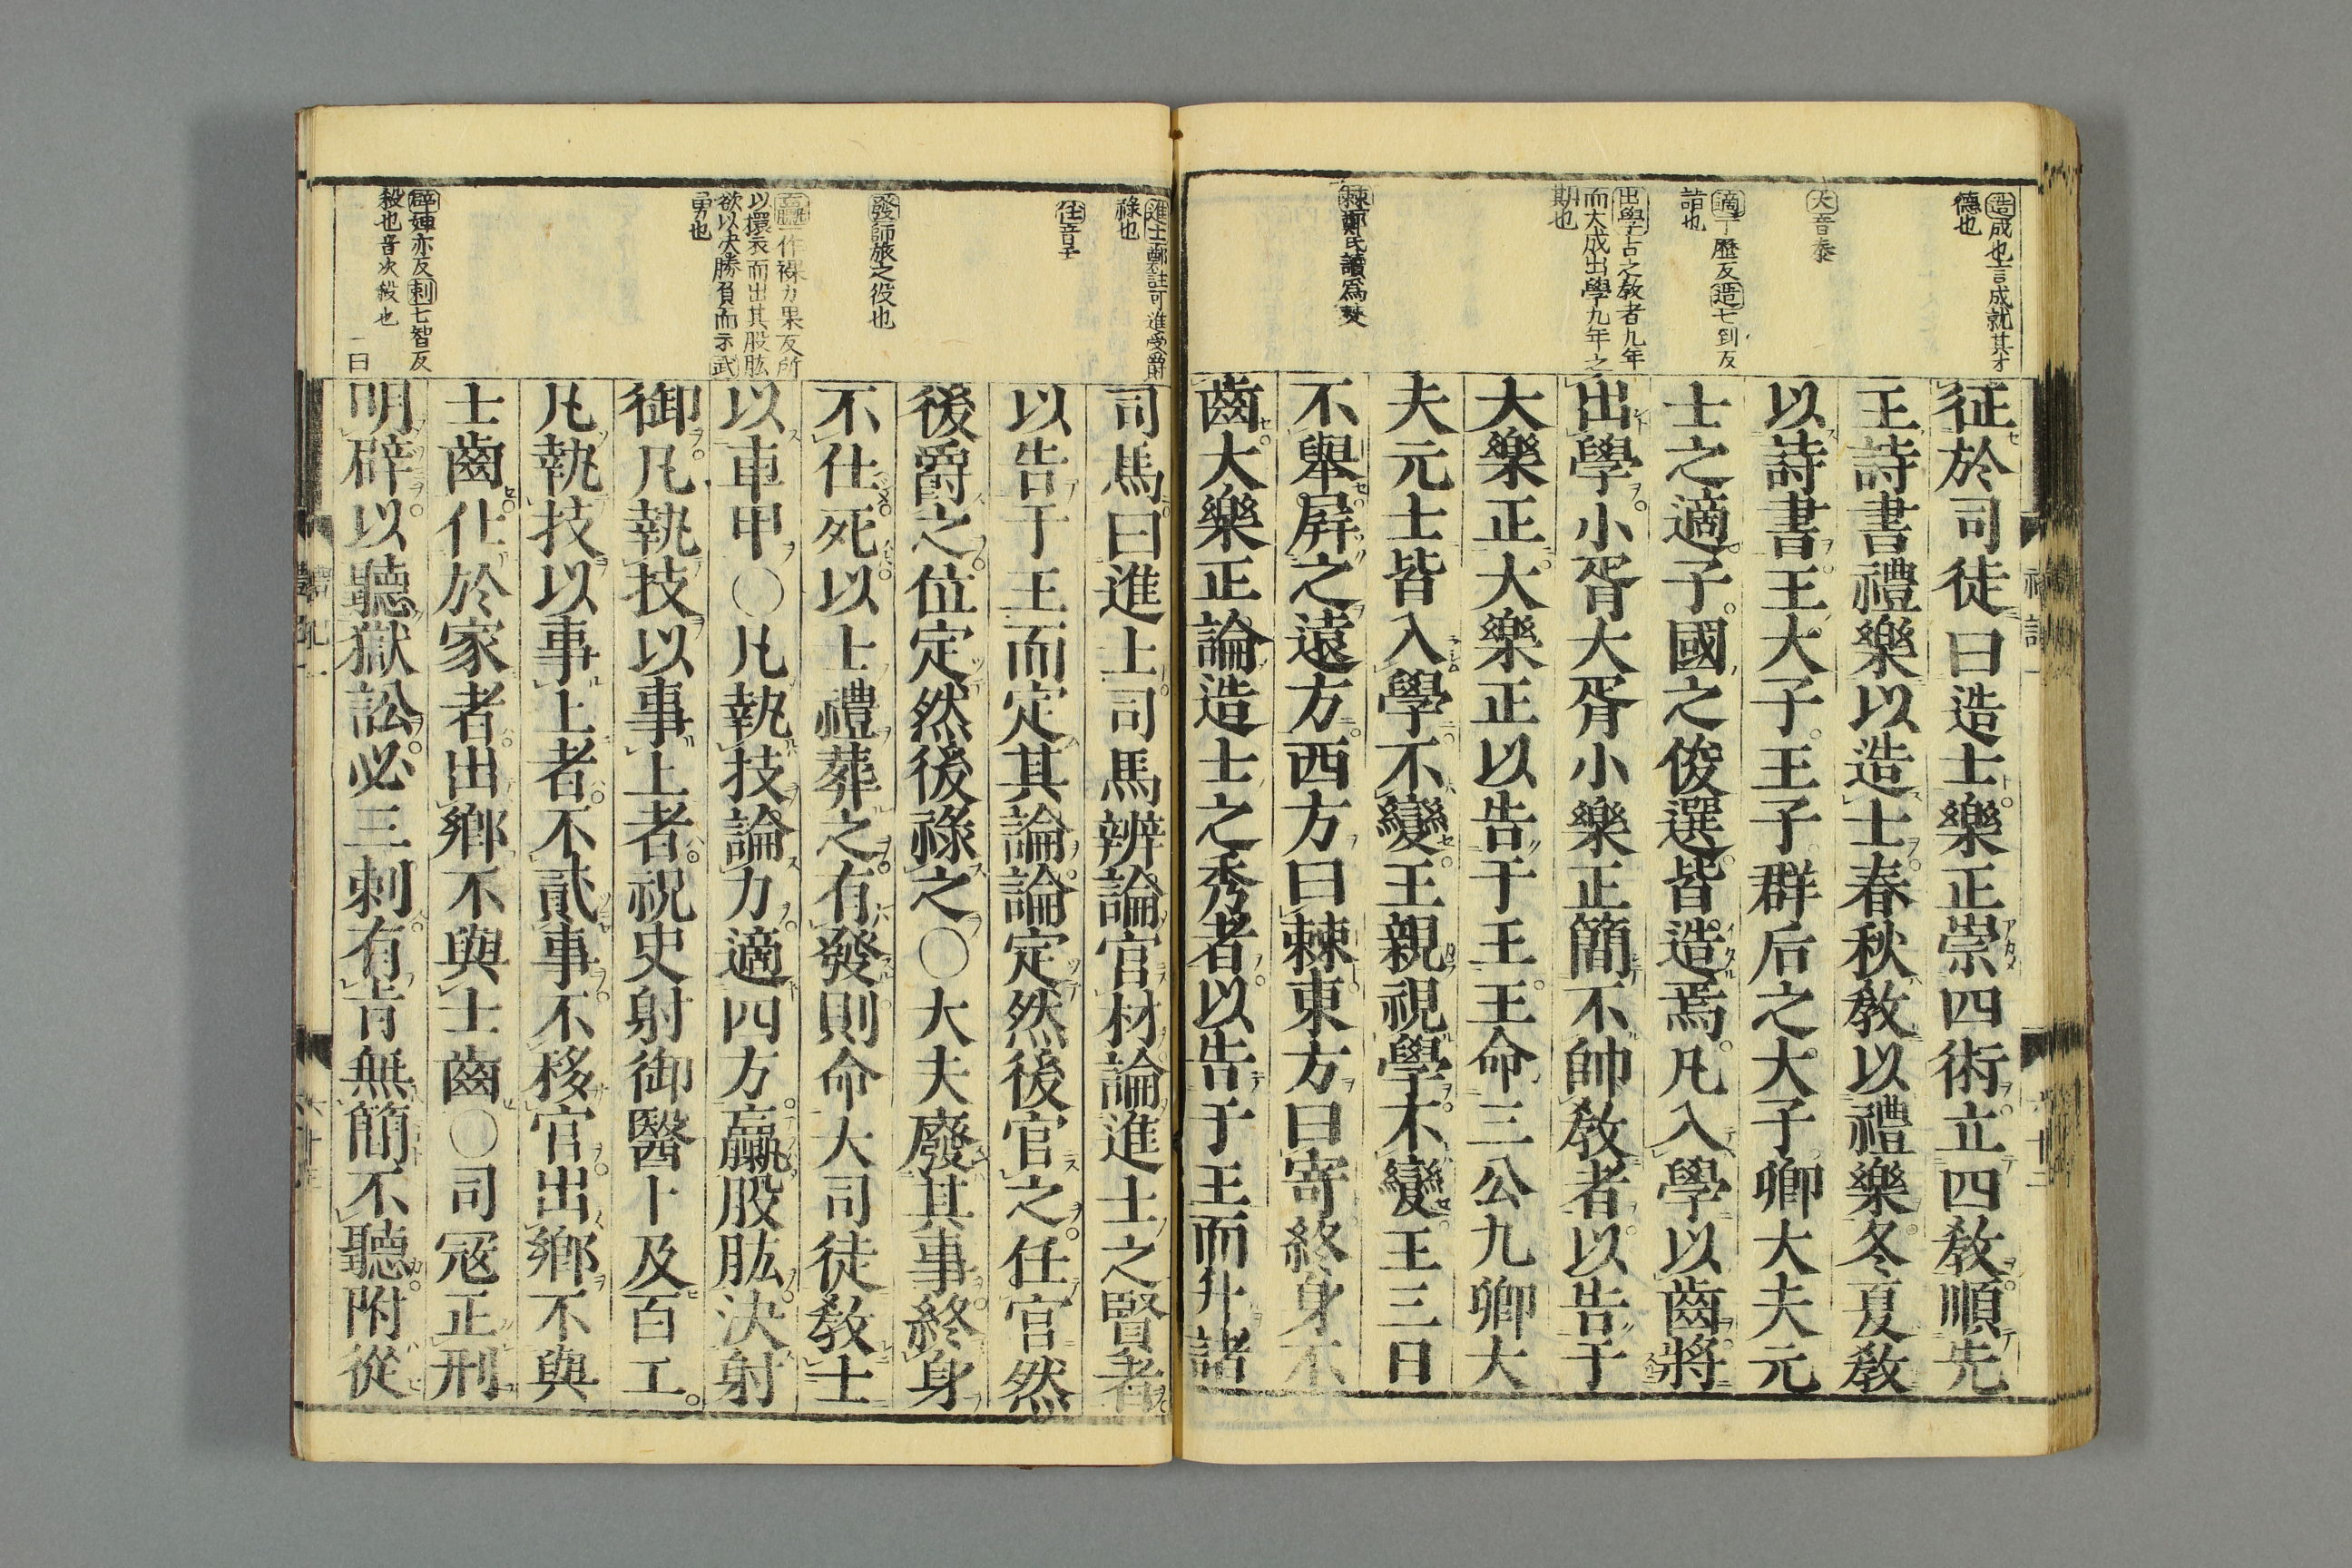 造成也言成就其才
德也
大音泰
適丁歷反造七到反
詣也
出學古之教者九年
而大成出學九年之
期也
棘鄭氏讀爲僰
征於司徒曰造士樂正崇四術立四教順先
王詩書禮樂以造士春秋教以禮樂冬夏教
以詩書王大子王子群后之大子卿大夫元
士之適子國之俊選皆造焉凡入學以齒將
出學小胥大胥小樂正簡不帥教者以告于
大樂正大樂正以告于王王命三公九卿大
夫元士皆入學不變王親視學不變王三日
不舉屏之遠方西方曰棘東方曰寄終身不
齒大樂正論造士之秀者以告于王而升諸
進士鄭註可進受爵
祿也
任音壬
發師旅之役也
臝一作裸力果反所
以擐衣而出其股肱
欲以決勝負而示武
勇也
辟婢亦反刺七智反
殺也音次殺也
一曰
司馬曰進士司馬辨論官材論進士之賢者
以告于王而定其論論定然後官之任官然
後爵之位定然後祿之○大夫廢其事終身
不仕死以士禮葬之有發則命大司徒教士
以車甲○凡執技論力適四方臝股肱決射
御凡執技以事上者祝史射御醫卜及百工
凡執技以事上者不貳事不移官出鄉不與
士齒仕於家者出鄉不與士齒○司寇正刑
明辟以聽獄訟必三刺有旨無簡不聽附從